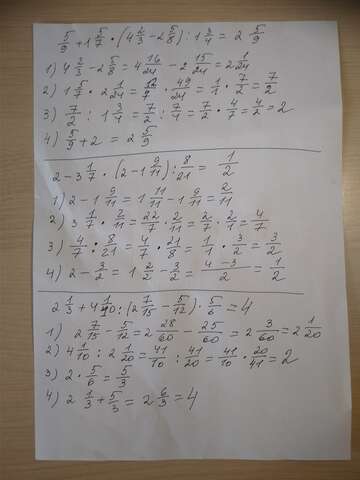 5/9 + 1 5/7 · (4 2/3 - 2 5/8) : 1 3/4 = 2 5/9
1) 4 2/3 - 2 5/8 = 4 16/24 - 2 15/24 = 2 1/24
2) 1 5/7 · 2 1/24 = 12/7 · 49/24 = 1/1 · 7/2 = 7/2
3) 7/2 : 1 3/4 = 7/2 : 7/4 = 7/2 · 4/7 = 4/2 = 2
4) 5/9 + 2 = 2 5/9
2 - 3 1/7 · (2 - 1 9/11) : 8/21 = 1/2
1) 2 - 1 9/11 = 1 11/11 - 1 9/11 = 2/11
2) 3 1/7 · 2/11 = 22/7 · 2/11 = 2/7 · 2/1 = 4/7
3) 4/7 : 8/21 = 4/7 · 21/8 = 1/1 · 3/2 = 3/2
4) 2 - 3/2 = 1 2/2 - 3/2 = 4-3/2 = 1/2
2 1/3 + 4 1/10 : (2 7/15 - 5/12) · 5/6 = 4
1) 2 7/15 - 5/12 = 2 28/60 - 25/60 = 2 3/60 = 2 1/20
2) 4 1/10 : 2 1/20 = 41/10 : 41/20 = 41/10 · 20/41 = 2
3) 2 · 5/6 = 5/3
4) 2 1/3 + 5/3 = 2 6/3 = 4